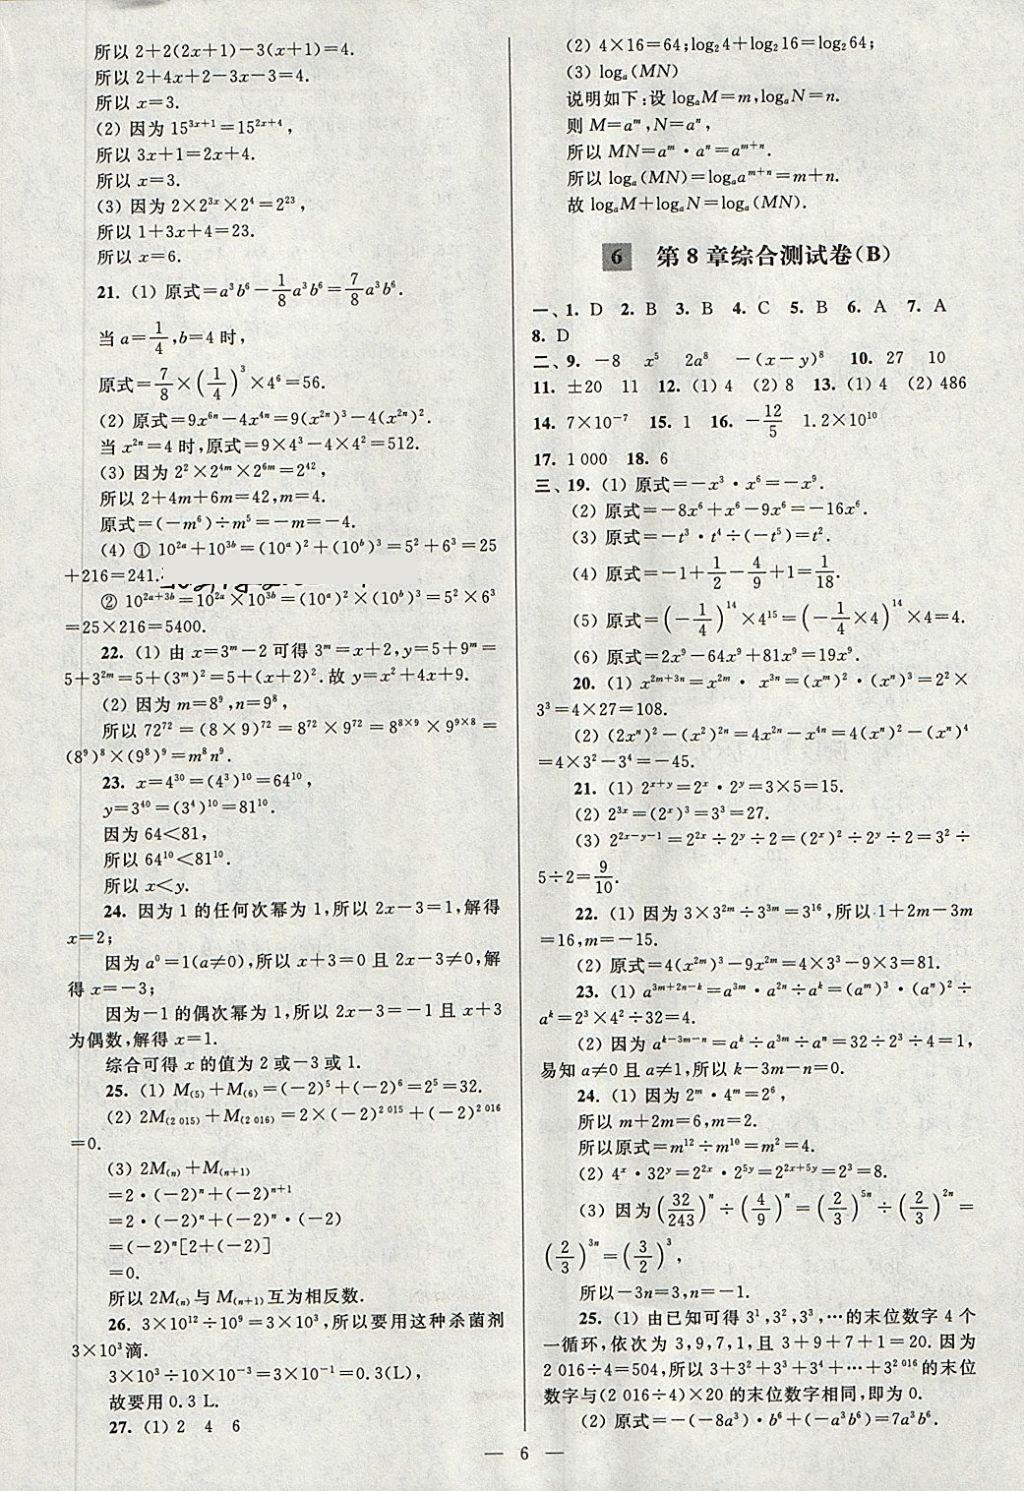 所以 2+2(2x+1)-3(x+1)=4.
所以 2+4x+2-3x-3=4.
所以 x=3.
(2) 因为 15³ˣ⁺¹=15²ˣ⁺⁴,
所以 3x+1=2x+4.
所以 x=3.
(3) 因为 2×2³ˣ×2⁴=2²³,
所以 1+3x+4=23.
所以 x=6.
21. (1) 原式=a³b⁶-1/8a³b⁶=7/8a³b⁶.
当 a=1/4,b=4 时,
原式=7/8×(1/4)³×4⁶=56.
(2) 原式=9x⁶ⁿ-4x⁴ⁿ=9(x²ⁿ)³-4(x²ⁿ)².
当 x²ⁿ=4 时,原式=9×4³-4×4²=512.
(3) 因为 2²×2⁴ᵐ×2⁶ᵐ=2⁴²,
所以 2+4m+6m=42,m=4.
原式=(-m⁶)÷m⁵=-m=-4.
(4) ① 10²ᵃ+10³ᵇ=(10ᵃ)²+(10ᵇ)³=5²+6³=25
+216=241.
② 10²ᵃ⁺³ᵇ=10²ᵃ×10³ᵇ=(10ᵃ)²×(10ᵇ)³=5²×6³
=25×216=5400.
22. (1) 由 x=3ᵐ-2 可得 3ᵐ=x+2,y=5+9ᵐ=
5+3²ᵐ=5+(3ᵐ)²=5+(x+2)².故 y=x²+4x+9.
(2) 因为 m=8⁹,n=9⁸,
所以 72⁷²=(8×9)⁷²=8⁷²×9⁷²=8⁸ˣ⁹×9⁹ˣ⁸=
(8⁹)⁸×(9⁸)⁹=m⁸n⁹.
23. x=4³⁰=(4³)¹⁰=64¹⁰,
y=3⁴⁰=(3⁴)¹⁰=81¹⁰.
因为 64<81,
所以 64¹⁰<81¹⁰.
所以 x<y.
24. 因为 1 的任何次幂为 1,所以 2x-3=1,解得
x=2;
因为 a⁰=1(a≠0),所以 x+3=0 且 2x-3≠0,解
得 x=-3;
因为-1 的偶次幂为 1,所以 2x-3=-1 且 x+3
为偶数,解得 x=1.
综合可得 x 的值为 2 或-3 或 1.
25. (1) M₍₅₎+M₍₆₎=(-2)⁵+(-2)⁶=2⁵=32.
(2) 2M₍₂ ₀₁₅₎+M₍₂ ₀₁₆₎=2×(-2)² ⁰¹⁵+(-2)² ⁰¹⁶
=0.
(3) 2M₍ₙ₎+M₍ₙ₊₁₎
=2·(-2)ⁿ+(-2)ⁿ⁺¹
=2·(-2)ⁿ+(-2)ⁿ·(-2)
=(-2)ⁿ[2+(-2)]
=0.
所以 2M₍ₙ₎与 M₍ₙ₊₁₎互为相反数.
26. 3×10¹²÷10⁹=3×10³,所以要用这种杀菌剂
3×10³滴.
3×10³÷10×10⁻³=3×10⁻¹=0.3(L),
故要用 0.3 L.
27. (1) 2 4 6
(2) 4×16=64;log₂4+log₂16=log₂64;
(3) logₐ(MN)
说明如下:设 logₐM=m,logₐN=n.
则 M=aᵐ,N=aⁿ,
所以 MN=aᵐ·aⁿ=aᵐ⁺ⁿ.
所以 logₐ(MN)=logₐaᵐ⁺ⁿ=m+n.
故 logₐM+logₐN=logₐ(MN).
6 第 8 章综合测试卷(B)
一、1. D 2. B 3. B 4. C 5. B 6. A 7. A
8. D
二、9. -8 x⁵ 2a⁸ -(x-y)⁸ 10. 27 10
11. ±20 11 12. (1) 4 (2) 8 13. (1) 4 (2) 486
14. 7×10⁻⁷ 15. 1 16. -12/5 1.2×10¹⁰
17. 1 000 18. 6
三、19. (1) 原式=-x³·x⁶=-x⁹.
(2) 原式=-8x⁶+x⁶-9x⁶=-16x⁶.
(3) 原式=-t³·t⁴÷(-t⁵)=t².
(4) 原式=-1+1/2-4/9+1=1/18.
(5) 原式=(-1/4)¹⁴×4¹⁵=(-1/4×4)¹⁴×4=4.
(6) 原式=2x⁹-64x⁹+81x⁹=19x⁹.
20. (1) x²ᵐ⁺³ⁿ=x²ᵐ· x³ⁿ=(xᵐ)²·(xⁿ)³=2²×
3³=4×27=108.
(2) (2xⁿ)²-(x²)²ⁿ=4x²ⁿ-x⁴ⁿ=4(xⁿ)²-(xⁿ)⁴
=4×3²-3⁴=-45.
21. (1) 2ˣ⁺ʸ=2ˣ·2ʸ=3×5=15.
(2) 2³ˣ=(2ˣ)³=3³=27.
(3) 2²ˣ⁻ʸ⁻¹=2²ˣ÷2ʸ÷2=(2ˣ)²÷2ʸ÷2=3²÷
5÷2=9/10.
22. (1) 因为 3×3²ᵐ÷3³ᵐ=3¹⁶,所以 1+2m-3m
=16,m=-15.
(2) 原式=4(x²ᵐ)³-9x²ᵐ=4×3³-9×3=81.
23. (1) a³ᵐ⁺²ⁿ⁻ᵏ=a³ᵐ·a²ⁿ÷aᵏ=(aᵐ)³·(aⁿ)²÷
aᵏ=2³×4²÷32=4.
(2) 因为 aᵏ⁻³ᵐ⁻ⁿ=aᵏ÷a³ᵐ÷aⁿ=32÷2³÷4=1,
易知 a≠0 且 a≠1,所以 k-3m-n=0.
24. (1) 因为 2ᵐ·4ᵐ=2⁶,
所以 m+2m=6,m=2.
所以原式=m¹²÷m¹⁰=m²=4.
(2) 4ˣ·32ʸ=2²ˣ·2⁵ʸ=2²ˣ⁺⁵ʸ=2³=8.
(3) 因为(32/243)ⁿ÷(4/9)ⁿ=(2/3)⁵ⁿ÷(2/3)²ⁿ=
(2/3)³ⁿ=(3/2)³,
所以-3n=3,n=-1.
25. (1) 由已知可得 3¹,3²,3³,…的末位数字 4 个
一循环,依次为 3,9,7,1,且 3+9+7+1=20. 因为
2 016÷4=504,所以 3+3²+3³+3⁴+…+3² ⁰¹⁶的末位
数字与(2 016÷4)×20 的末位数字相同,即为 0.
(2) 原式=-(-8a³)·b⁶+(-a³b⁶)=7a³b⁶.
— 6 —